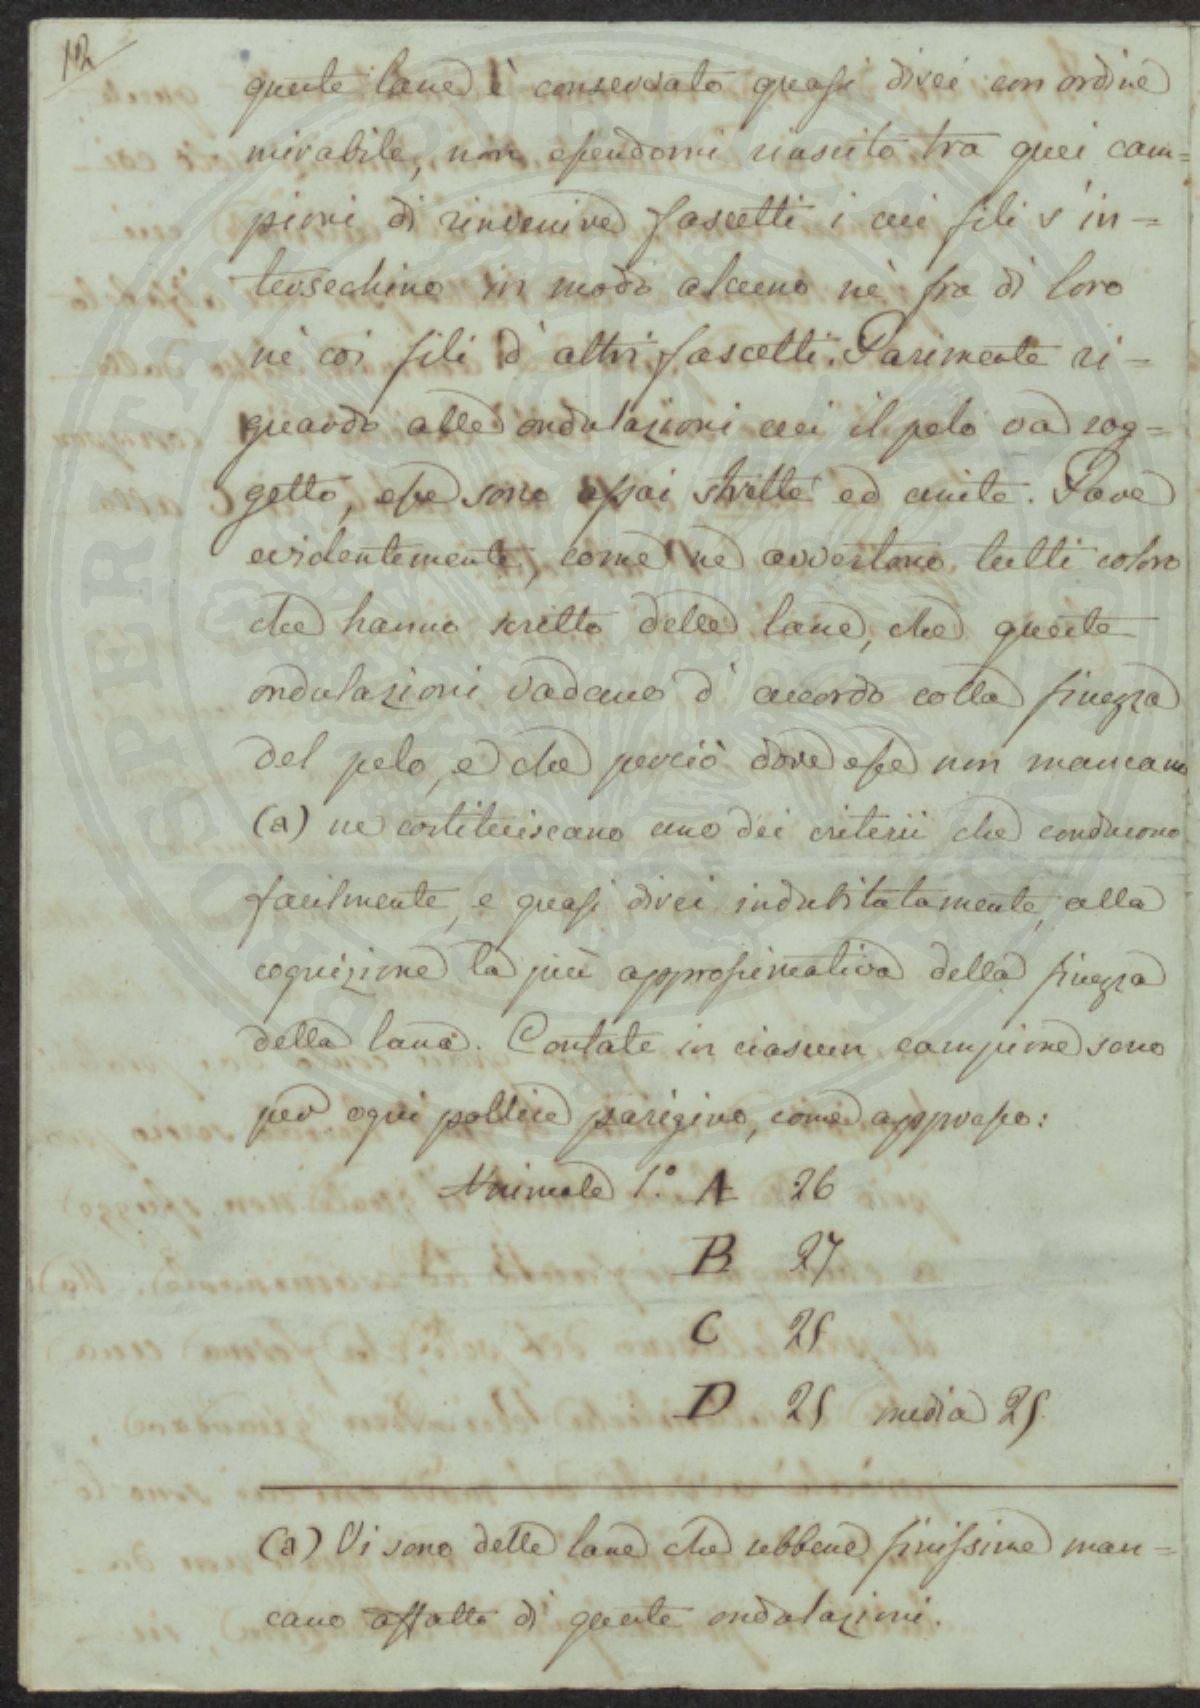 12
queste lane è conservato quasi direi con ordine
mirabile, non essendomi riuscito tra quei cam=
pioni di rinvenire fascetti i cui fili s'in=
tersechino in modo alcuno nè fra di loro
nè coi fili d'altri fascetti. Parimente ri=
guardo alle ondulazioni cui il pelo va sog=
getto, esse sono assai strette ed unite. Pare
evidentemente, come ne avvertono tutti coloro
che hanno scritto delle lane, che queste
ondulazioni vadano d'accordo colla finezza
del pelo, e che perciò dove esse non mancano
(a) ne costituiscano uno dei criterii che conducono
facilmente, e quasi direi indubitatamente, alla
cognizione la più approssimativa della finezza
della lana. Contate in ciascun campione sono
per ogni pollice parigino, come appresso:
Animale 1.° A 26
B 27
C 25
D 25 media 25.
(a) Vi sono delle lane che sebbene finissime man=
cano affatto di queste ondulazioni.